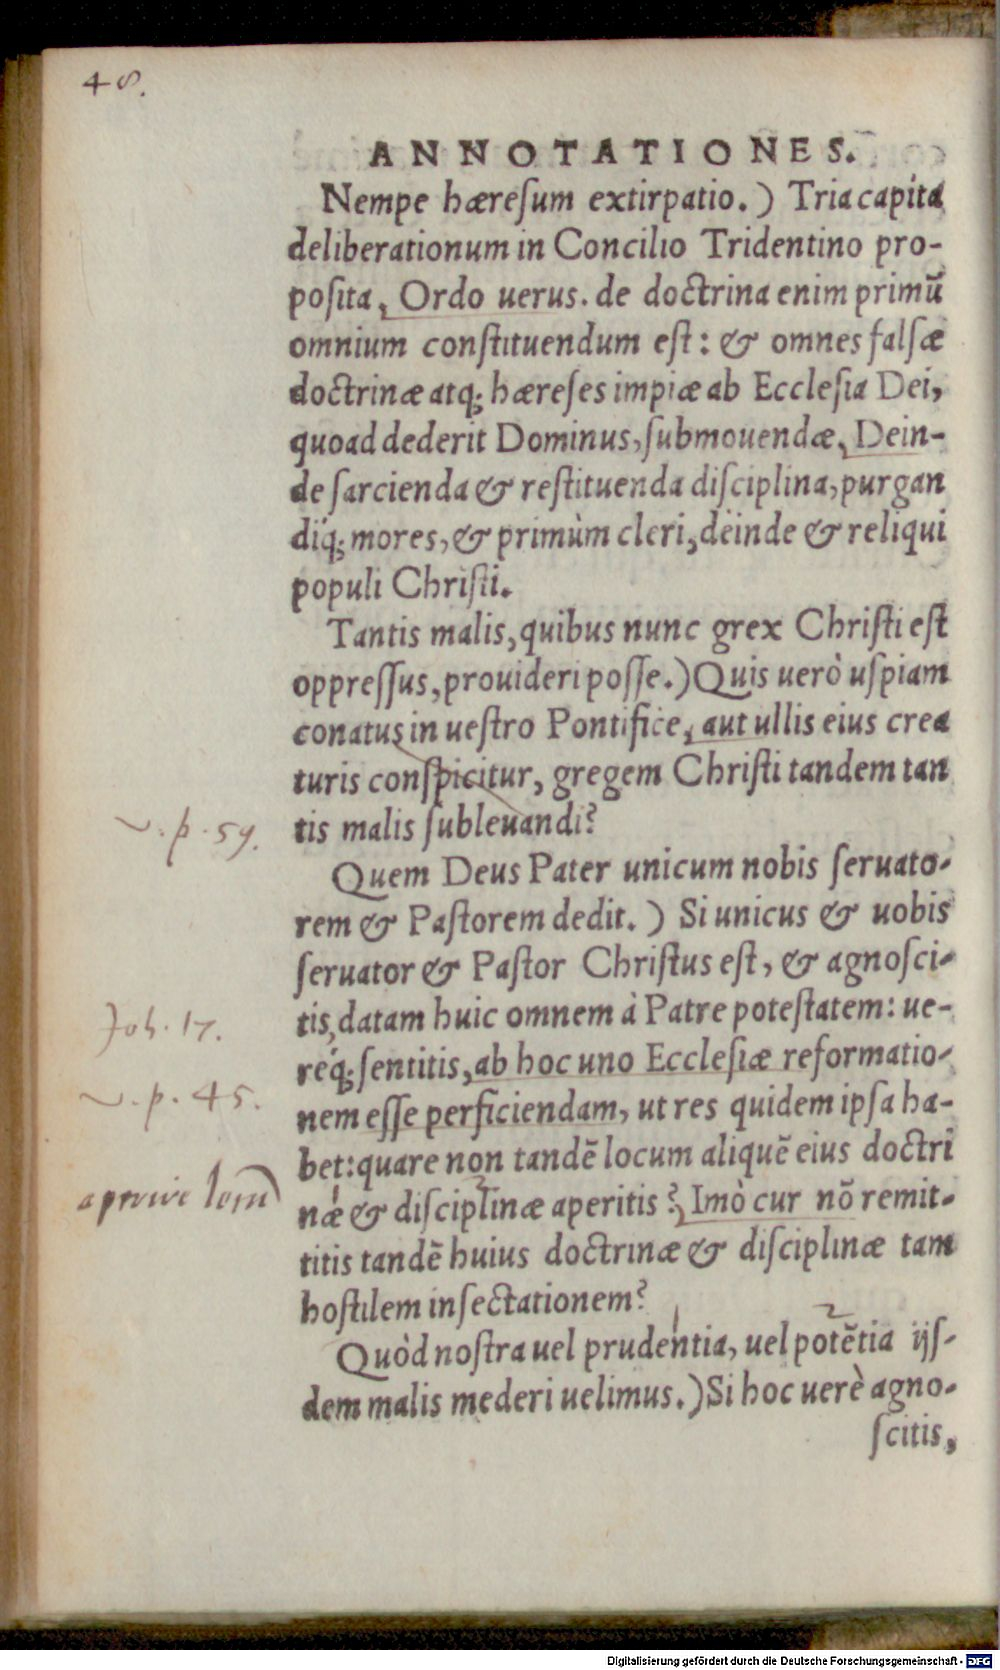 48.
ANNOTATIONES.
Nempe hæreſum extirpatio.) Tria capita
deliberationum in Concilio Tridentino pro-
poſita, Ordo uerus. de doctrina enim primū
omnium conſtituendum eſt: & omnes falſæ
doctrinæ atq; hæreſes impiæ ab Eccleſia Dei,
quoad dederit Dominus, ſubmouendæ, Dein-
de ſarcienda & reſtituenda diſciplina, purgan
díq; mores, & primùm cleri, deinde & reliqui
populi Chriſti.
Tantis malis, quibus nunc grex Chriſti eſt
oppreſſus, prouideri poſſe.) Quis uerò uſpiam
conatus in ueſtro Pontifice, aut ullis eius crea
turis conſpicitur, gregem Chriſti tandem tan
v. p. 59. tis malis ſubleuandi?
Quem Deus Pater unicum nobis ſeruato-
rem & Paſtorem dedit.) Si unicus & uobis
ſeruator & Paſtor Chriſtus eſt, & agnoſci-
Joh. 17. tis, datam huic omnem à Patre poteſtatem: ue-
réq; ſentitis, ab hoc uno Eccleſiæ reformatio-
v. p. 45. nem eſſe perficiendam, ut res quidem ipſa ha-
bet: quare non tandē locum aliquē eius doctri
næ & diſciplinæ aperitis? Imò cur nō remit-
titis tandē huius doctrinæ & diſciplinæ tam
hoſtilem inſectationem?
Quòd noſtra uel prudentia, uel potētia ijſ-
dem malis mederi uelimus.) Si hoc uerè agno-
ſcitis,
Digitalisierung gefördert durch die Deutsche Forschungsgemeinschaft - DFG